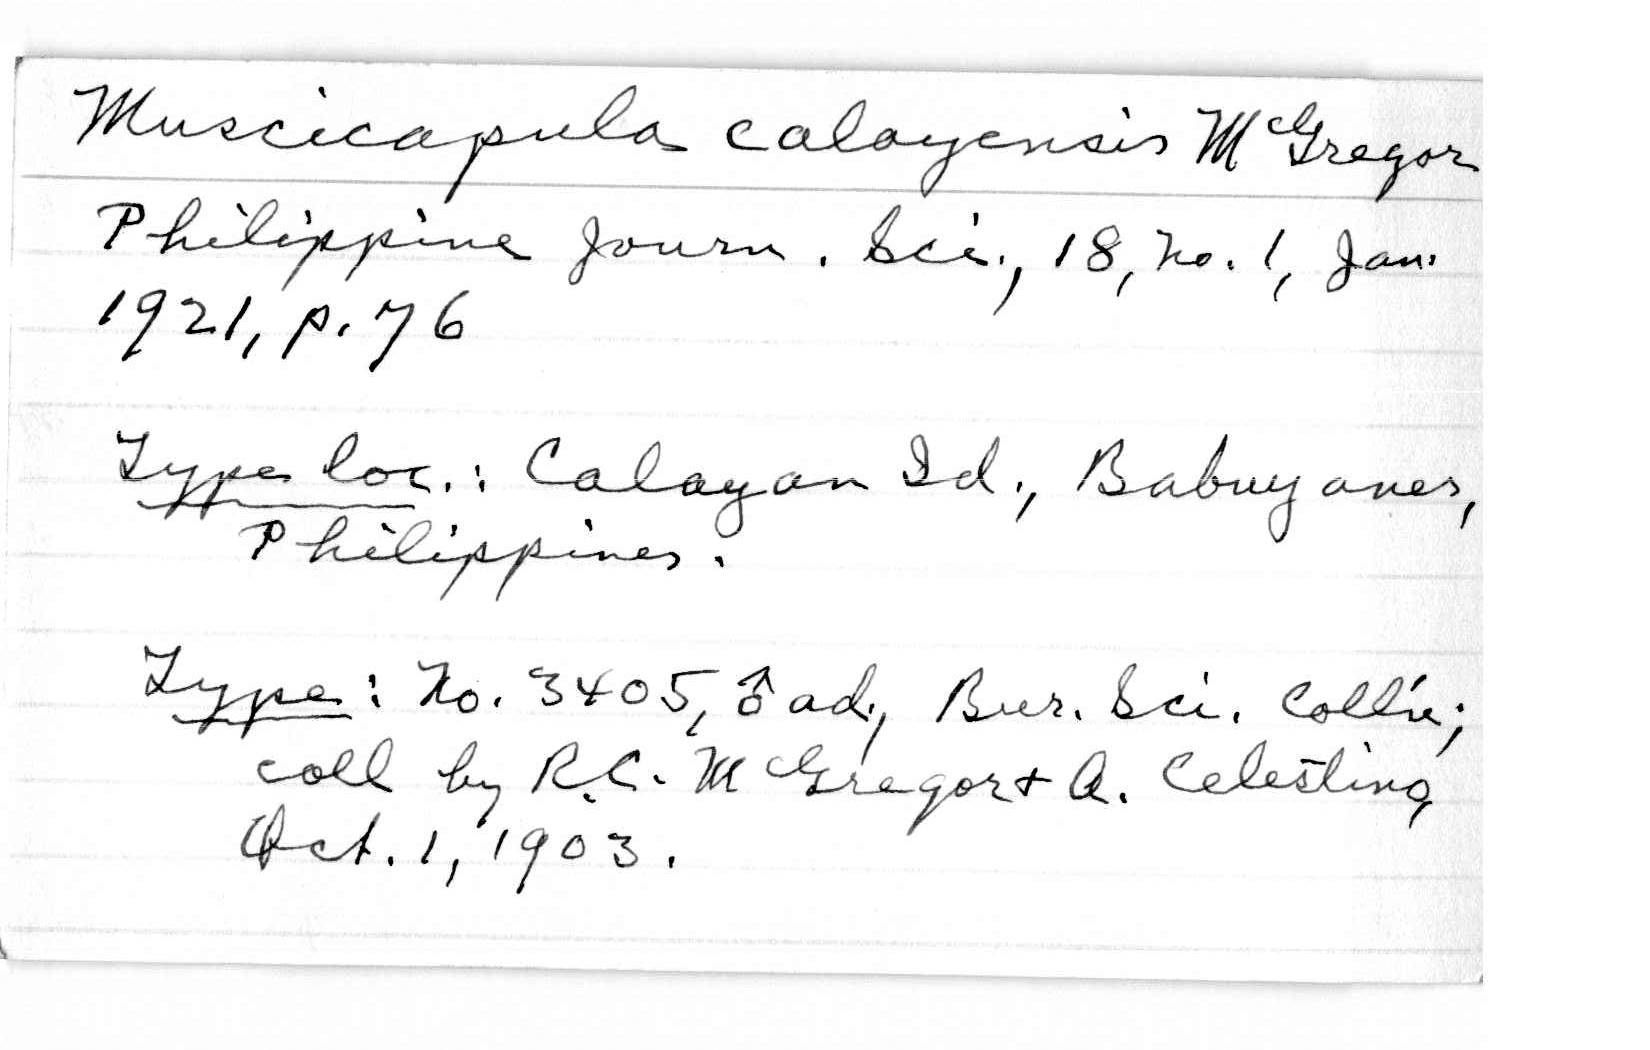 Muscicapula calayensis McGregor
Philippine Journ. Sci., 18, no. 1, Jan.
1921, p. 76
Type loc.: Calayan Id., Babuyanes,
Philippines.
Type: No. 3405, ♂ ad., Bur. Sci. Coll'n;
coll by R.C. McGregor + A. Celestino,
Oct. 1, 1903.